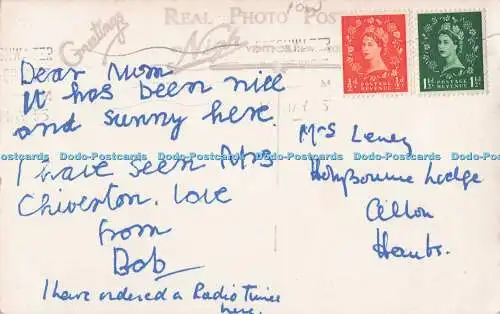 REAL PHOTO POST
Greetings
Dear Mum
It has been nice
and sunny here.
I have seen Mrs
Chiverton. Love
from
Bob
I have ordered a Radio Times
here.
½d POSTAGE REVENUE ½d
1½d POSTAGE REVENUE 1½d
Mrs Leney
Holybourne Lodge
Alton
Hants.
Dodo-Postcards Dodo-Postcards Dodo-Postcards Dodo-Postcards Dodo-Postcards Dodo-Postcards